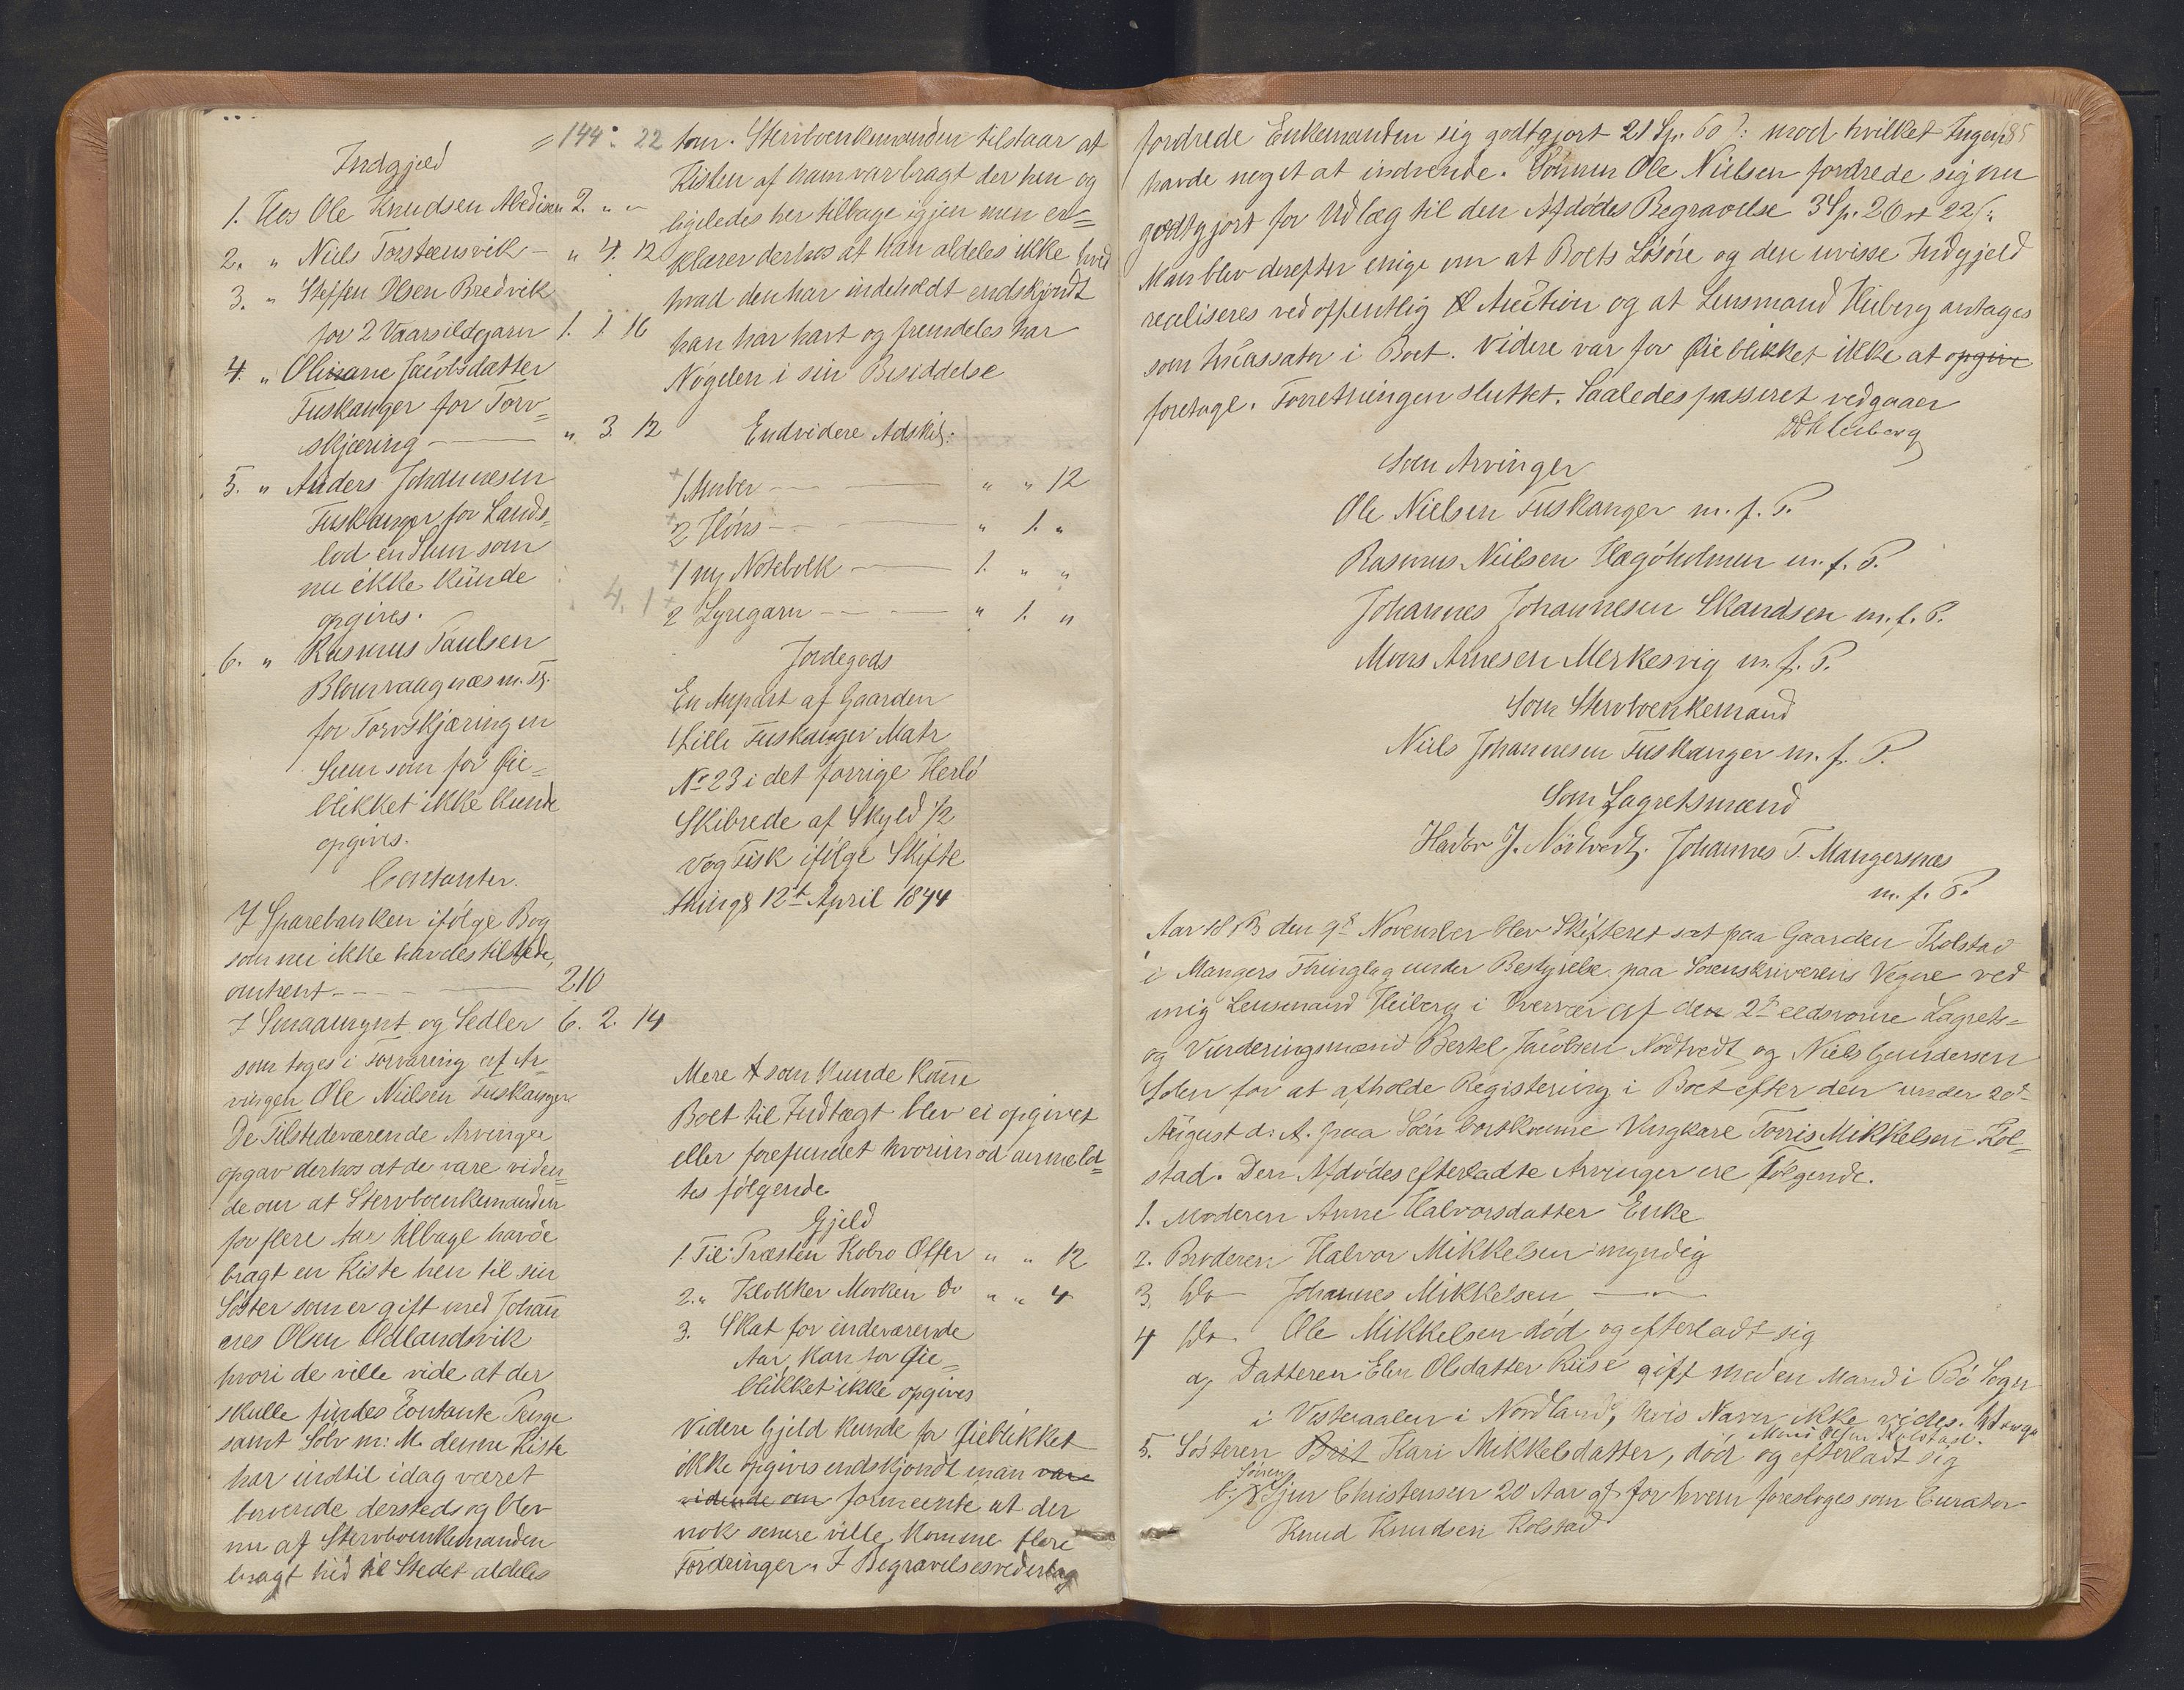 = 144: 22
Indgjeld
1. Hos Ole Knudsen 2. " "
2. " Niels Torsteensvik - " 4. 12
3. " Steffen Olsen Bredvik
for 2 Vaarsildgarn 1. 1. 16
4. " Jacobsdatter
Fuskanger for Torv=
skjæring " 3. 12
5. " Anders Johannesen
Fuskanger for Lands=
lod en Sum som
nu ikke kunde
opgives.
6. " Rasmus Paulsen
Blomvaagnæs m. Fl.
for Torvskjæring en
Sum som for Øie=
blikket ikke kunde
opgives.
Contanter.
I Sparebanken ifølge Bog
som nu ikke havdes tilstede,
omtrent. 210
I Smaamynt og Sedler 6. 2. 14
som toges i Forvaring af Ar=
vingen Ole Nielsen Fuskanger
De Tilstedeværende Arvinger
opgav derhos at de vare viden=
de om at Stervboenkemanden
for flere Aar tilbage havde
bragt en Kiste hen til sin
Søster som er gift med Johan
nes Olsen Oddlandsvik
hvori de ville vide at der
skulle findes Contante Penge
samt Sølv m: M. denne Kiste
har indtil idag været
beroende dersteds og blev
nu af Stervboenkemanden
bragt hid til Stedet aldeles
tom. Stervboenkemanden tilstaar at
Kisten af ham var bragt der hen og
ligeledes her tilbage igjen men er=
klærer derhos at han aldeles ikke hvid
hvad den har indeholdt endskjøndt
han har havt og fremdeles har
Nøgelen i sin Besiddelse
Endvidere Adskil:
1 Amber " " 12
2 Høns " 1. "
1 ny Notebolk 1. " "
4. 1 2 Lyregarn " 1. "
Jordegods
En Anpart af Gaarden
Lille Fuskanger Matr
No 23 i det forrige Herlø
Skibrede af Skyld 1/2
Vog Fisk ifølge Skifte
things 12t April 1844
Mere som kunde komme
Boet til Indtægt blev ei opgivet
eller forefundet hvorimod anmeld=
tes følgende
Gjeld
1. Til Præsten Kobro Offer " " 12
2. " Klokker Morken do " " 4
3. Skat for indeværende
Aar, kan for Øie=
blikket ikke opgives
Videre Gjeld kunde for Øieblikket
ikke opgives endskjøndt man vare
vidende om formeente at der
nok senere ville komme flere
Fordringer. I Begravelsesvederlag
185
fordrede Enkemanden sig godtgjort 21 Sp. 60 ?: mod hvilket Ingen
havde noget at indvende. Sønnen Ole Nielsen fordrede sig nu
godtgjort for Udlæg til den Afdødes Begravelse 3 Sp. 2 Ort 22 s:
Man blev derefter enige om at Boets Løsøre og den uvisse Indgjeld
realiseres ved offentlig Auction og at Lensmand Heiberg antages
som Incassator i Boet. Videre var for Øieblikket ikke at opgive
foretage. Forretningen sluttet. Saaledes passeret vedgaaer
Heiberg
Som Arvinger
Ole Nielsen Fuskanger m. f. P.
Rasmus Nielsen Hægøholmen m. f. P.
Johannes Johannesen Skandsen m. f. P.
Mons Arnesen Merkesvig m. f. P.
Som Stervboenkemand
Niels Johannesen Fuskanger m. f. P.
Som Lagretsmænd
J. Nødtvedt. Johannes T. Mangersnæs
m. f. P.
Aar den 9d November blev Skifteret sat paa Gaarden Kolstad
i Mangers Thinglag under Bestyrelse paa Sorenskriverens Vegne ved
mig Lensmand Heiberg i Overvær af den 2de eedsvorne Lagrets=
og Vurderingsmænd Bertel Jacobsen Nødtvedt og Niels Gundersen
Solen for at afholde Registering i Boet efter den under 20de
August d. A. paa Søen bortkomne Ungkarl Torris Mikkelsen Kol=
stad. Den Afdødes efterladte Arvinger ere følgende.
1. Moderen Anne Halvorsdatter Enke
2. Broderen Halvor Mikkelsen myndig
3. Do Johannes Mikkelsen — " —
4 Do Ole Mikkelsen død og efterladt sig
a, Datteren Elen Olsdatter Riise gift med en Mand i Bø Sogn
i Vesteraalen i Nordland, hvis Navn ikke vides.
5. Søsteren Brit Kari Mikkelsdatter, død og efterladt sig
Sønnen
Sjur Christensen 20 Aar gl for hvem foresloges som Curator
Knud Knudsen Kolstad